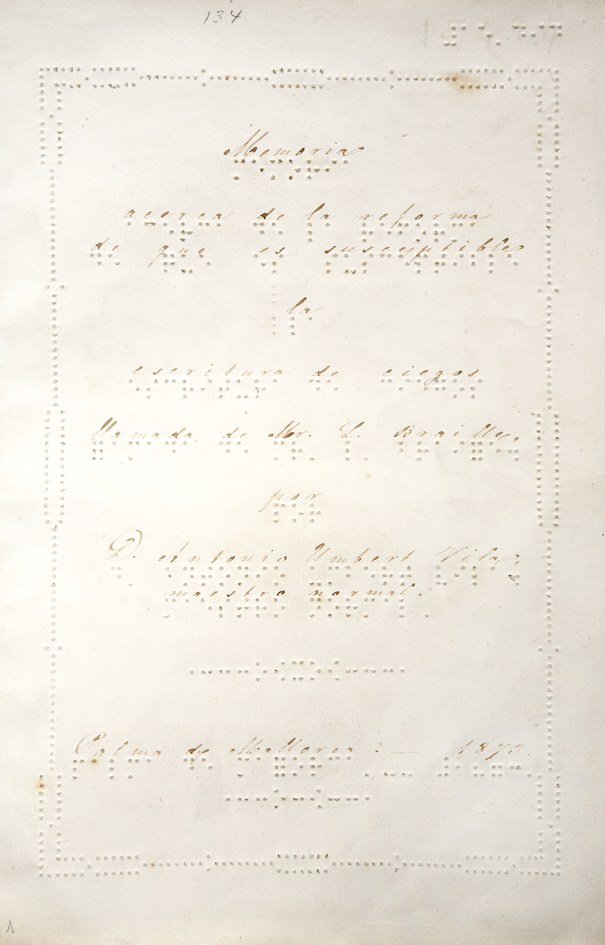 134
Memoria
acerca de la reforma
de que es susceptible
la
escritura de ciegos
llamada de Mr. L. Braille,
por
D. Antonio Umbert Vila,
maestro normal.
Palma de Mallorca: —